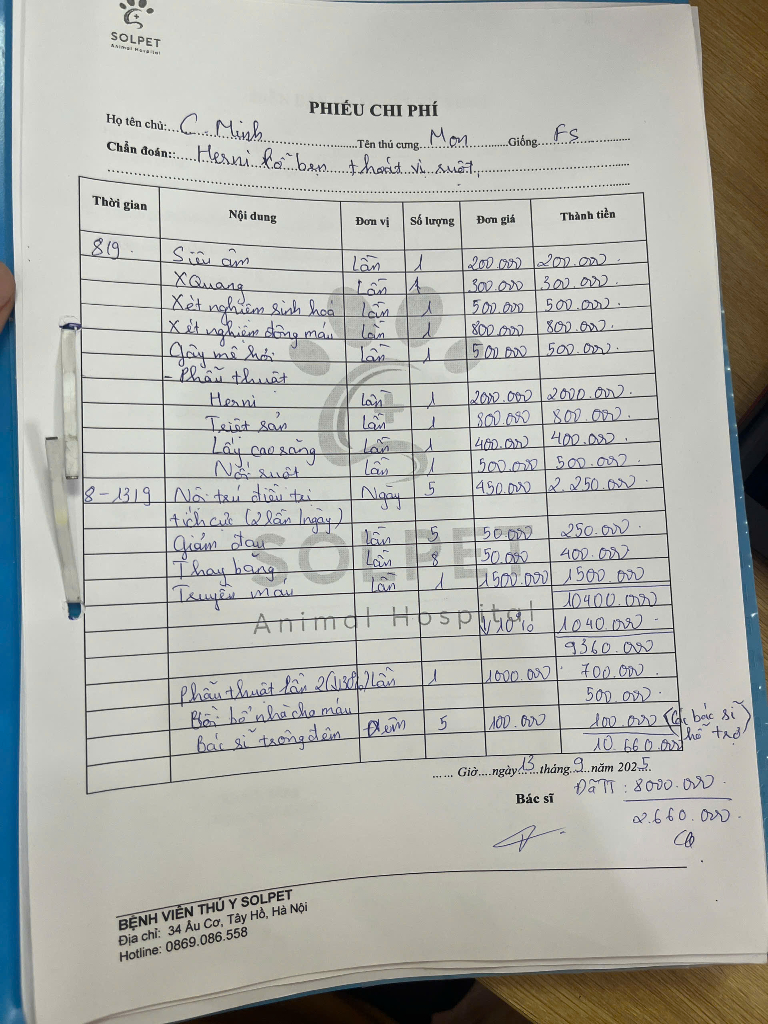 SOLPET
Animal Hospital
PHIẾU CHI PHÍ
Họ tên chủ:....C. Minh....Tên thú cưng Mon....Giống FS
Chẩn đoán:: Herni hố bẹn thoát vị ruột,
Thời gian Nội dung Đơn vị Số lượng Đơn giá Thành tiền
8/9. Siêu âm Lần 1 200.000 200.000.
XQuang Lần 1 300.000 300.000.
Xét nghiệm sinh hoá Lần 1 500.000 500.000.
Xét nghiệm đông máu Lần 1 800.000 800.000.
Gây mê hơi Lần 1 500 000 500.000.
- Phẫu thuật
Herni Lần 1 2000.000 2000.000.
Triệt sản Lần 1 800.000 800.000.
Lấy cao răng Lần 1 400.000 400.000.
Nối ruột Lần 1 500.000 500.000.
8-13/9 Nội trú điều trị Ngày 5 450.000 2.250.000.
tích cực (2 lần/ngày)
Giảm đau Lần 5 50.000 250.000.
Thay băng Lần 8 50.000 400.000.
Truyền máu Lần 1 1500.000 1500 000
SOLPET
Animal Hospital
10400.000
↓10% 1040.000
9360.000
Phẫu thuật lần 2 (↓30%) Lần 1 1000.000 700.000
Bồi bổ nhà cho máu 500.000.
Bác sĩ trông đêm Đêm 5 100.000 100.000 (Các bác sĩ hỗ trợ)
10 660.000
...... Giờ....ngày 13 tháng 9 năm 2025.
Bác sĩ
Đã TT : 8000.000.
2.660.000.
BỆNH VIỆN THÚ Y SOLPET
Địa chỉ: 34 Âu Cơ, Tây Hồ, Hà Nội
Hotline: 0869.086.558